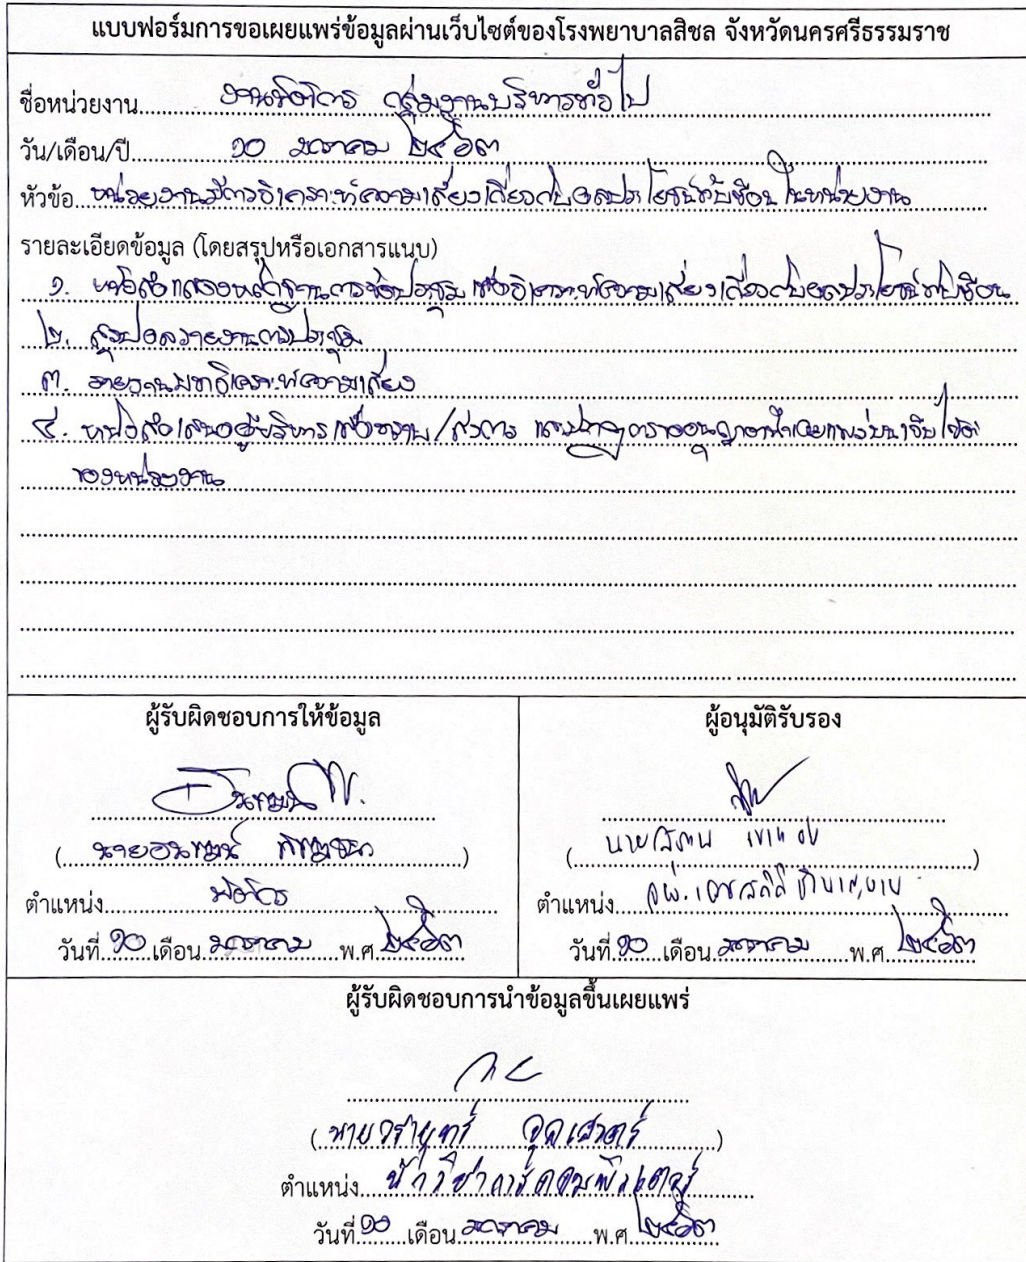 แบบฟอร์มการขอเผยแพร่ข้อมูลผ่านเว็บไซต์ของโรงพยาบาลสิชล จังหวัดนครศรีธรรมราช
ชื่อหน่วยงาน งานนิติการ กลุ่มงานบริหารทั่วไป
วัน/เดือน/ปี ๑๐ มกราคม ๒๕๖๓
หัวข้อ หน่วยงานมีการวิเคราะห์ความเสี่ยงเกี่ยวกับผลประโยชน์ทับซ้อนในหน่วยงาน
รายละเอียดข้อมูล (โดยสรุปหรือเอกสารแนบ)
๑. หนังสือแสดงหลักฐานการจัดประชุม เพื่อวิเคราะห์ความเสี่ยงเกี่ยวกับผลประโยชน์ทับซ้อน
๒. สรุปผลรายงานการประชุม
๓. รายงานผลวิเคราะห์ความเสี่ยง
๔. หนังสือเสนอผู้บริหาร เพื่อทราบ/สั่งการ และปรากฏการขออนุญาตนำเผยแพร่บนเว็บไซต์
ของหน่วยงาน
ผู้รับผิดชอบการให้ข้อมูล
(นาย )
ตำแหน่ง นิติกร
วันที่ ๑๐ เดือน มกราคม พ.ศ. ๒๕๖๓
ผู้อนุมัติรับรอง
(นาย )
ตำแหน่ง
วันที่ ๑๐ เดือน มกราคม พ.ศ. ๒๕๖๓
ผู้รับผิดชอบการนำข้อมูลขึ้นเผยแพร่
(นาย )
ตำแหน่ง นักวิชาการคอมพิวเตอร์
วันที่ ๑๐ เดือน มกราคม พ.ศ. ๒๕๖๓